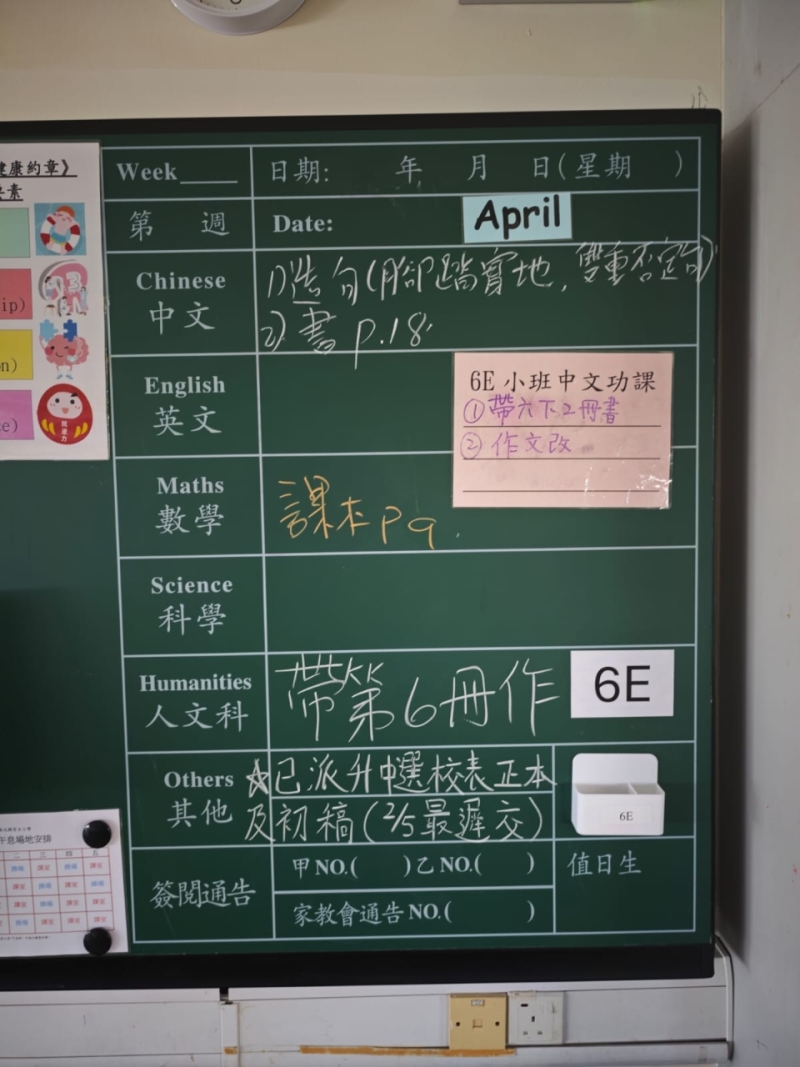 健康約章》
要素
ip)
on)
ce)
抗逆力
Week____ 日期: 年 月 日(星期 )
第 週 Date: April
Chinese
中文
1)造句(腳踏實地,雙重否定句)
2)書 p.18.
English
英文
6E 小班中文功課
①帶六下2冊書
②作文改
Maths
數學
課本 P9.
Science
科學
Humanities
人文科
帶第6冊作
6E
Others
其他
☆已派升中選校表正本
及初稿(2/5最遲交)
6E
簽閱通告
甲NO.( )乙NO.( )
家教會通告NO.( )
值日生
午息場地安排
三 四 五